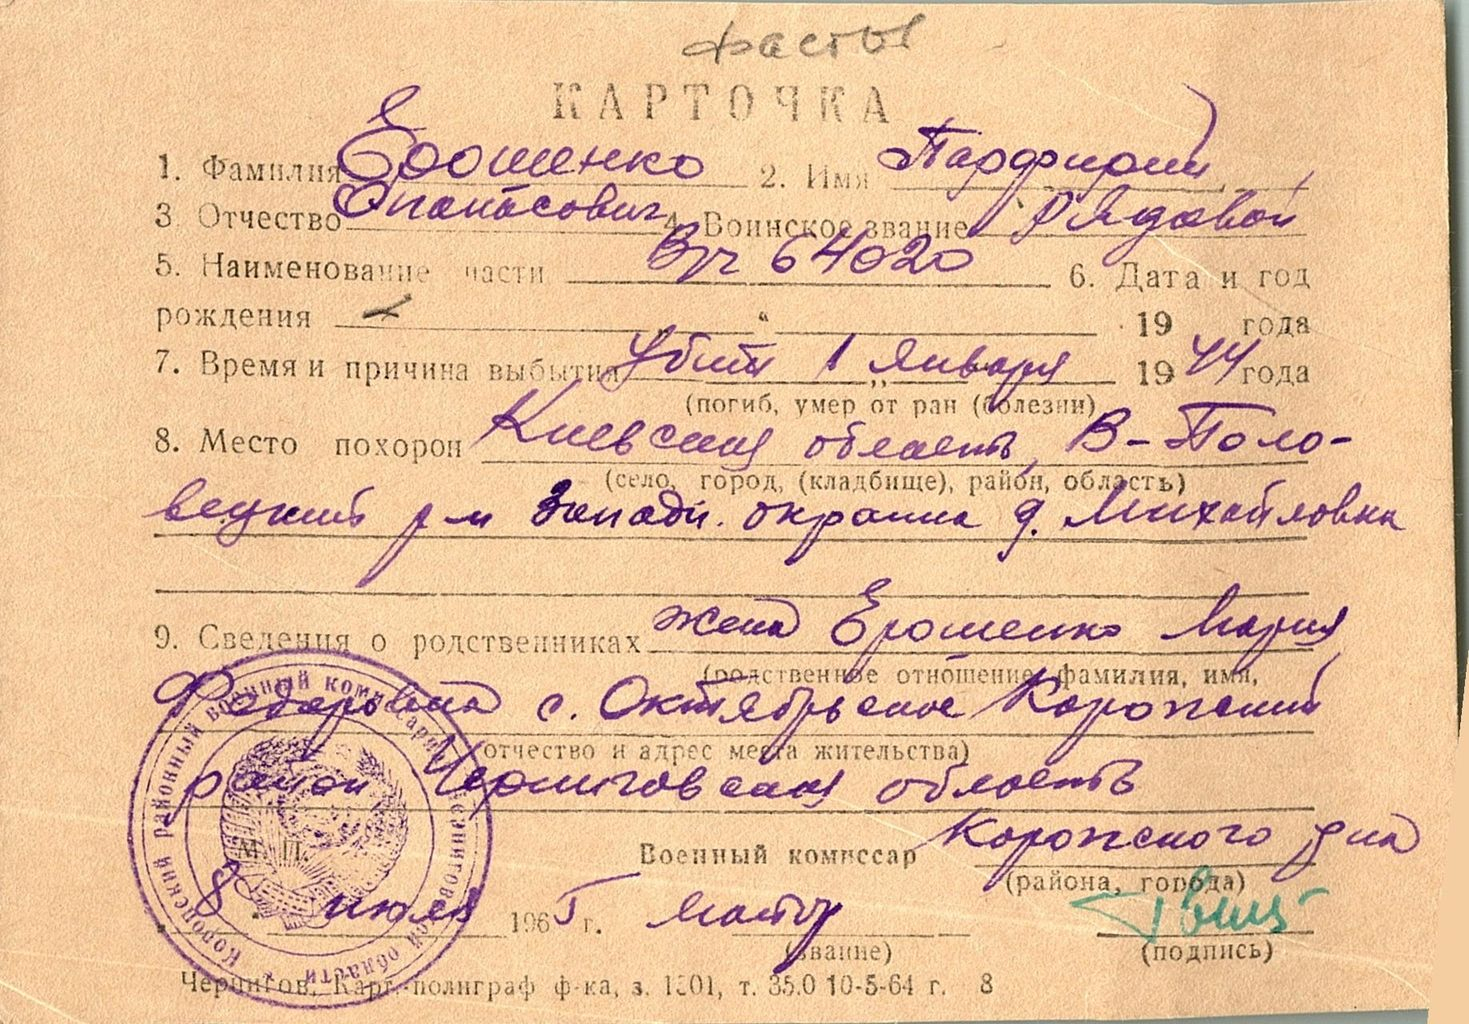 фасты
КАРТОЧКА
1. Фамилия Ерошенко 2. Имя Парфирий
3 Отчество Опанасович 4. Воинское звание Рядовой
5. Наименование части В/ч 64020 6. Дата и год
рождения „ “ 19 года
7. Время и причина выбытия Убит 1 января 1944 года
(погиб, умер от ран (болезни)
8. Место похорон Киевская область, В-Поло-
(село, город, (кладбище), район, область)
вецкий р-н Западн. окраина д. Михайловка
9. Сведения о родственниках жена Ерошенко Мария
(родственное отношение, фамилия, имя,
Федоровна с. Октябрьское Коропский
отчество и адрес места жительства)
район Черниговская область
Военный комиссар Коропского р-на
(района, города)
М. П.
8 июля 1965 г. Майор
(звание) (подпись)
Коропский районный военный комиссариат Черниговской области
Чернигов, Карт.-полиграф ф-ка, з. 1301, т. 35.0 10-5-64 г. 8